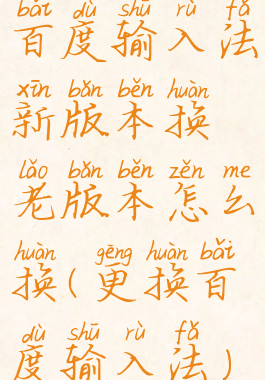 bǎi dù shū rù fǎ
百度输入法
xīn bǎn běn huàn
新版本换
lǎo bǎn běn zěn me
老版本怎么
huàn gēng huàn bǎi
换(更换百
dù shū rù fǎ
度输入法)